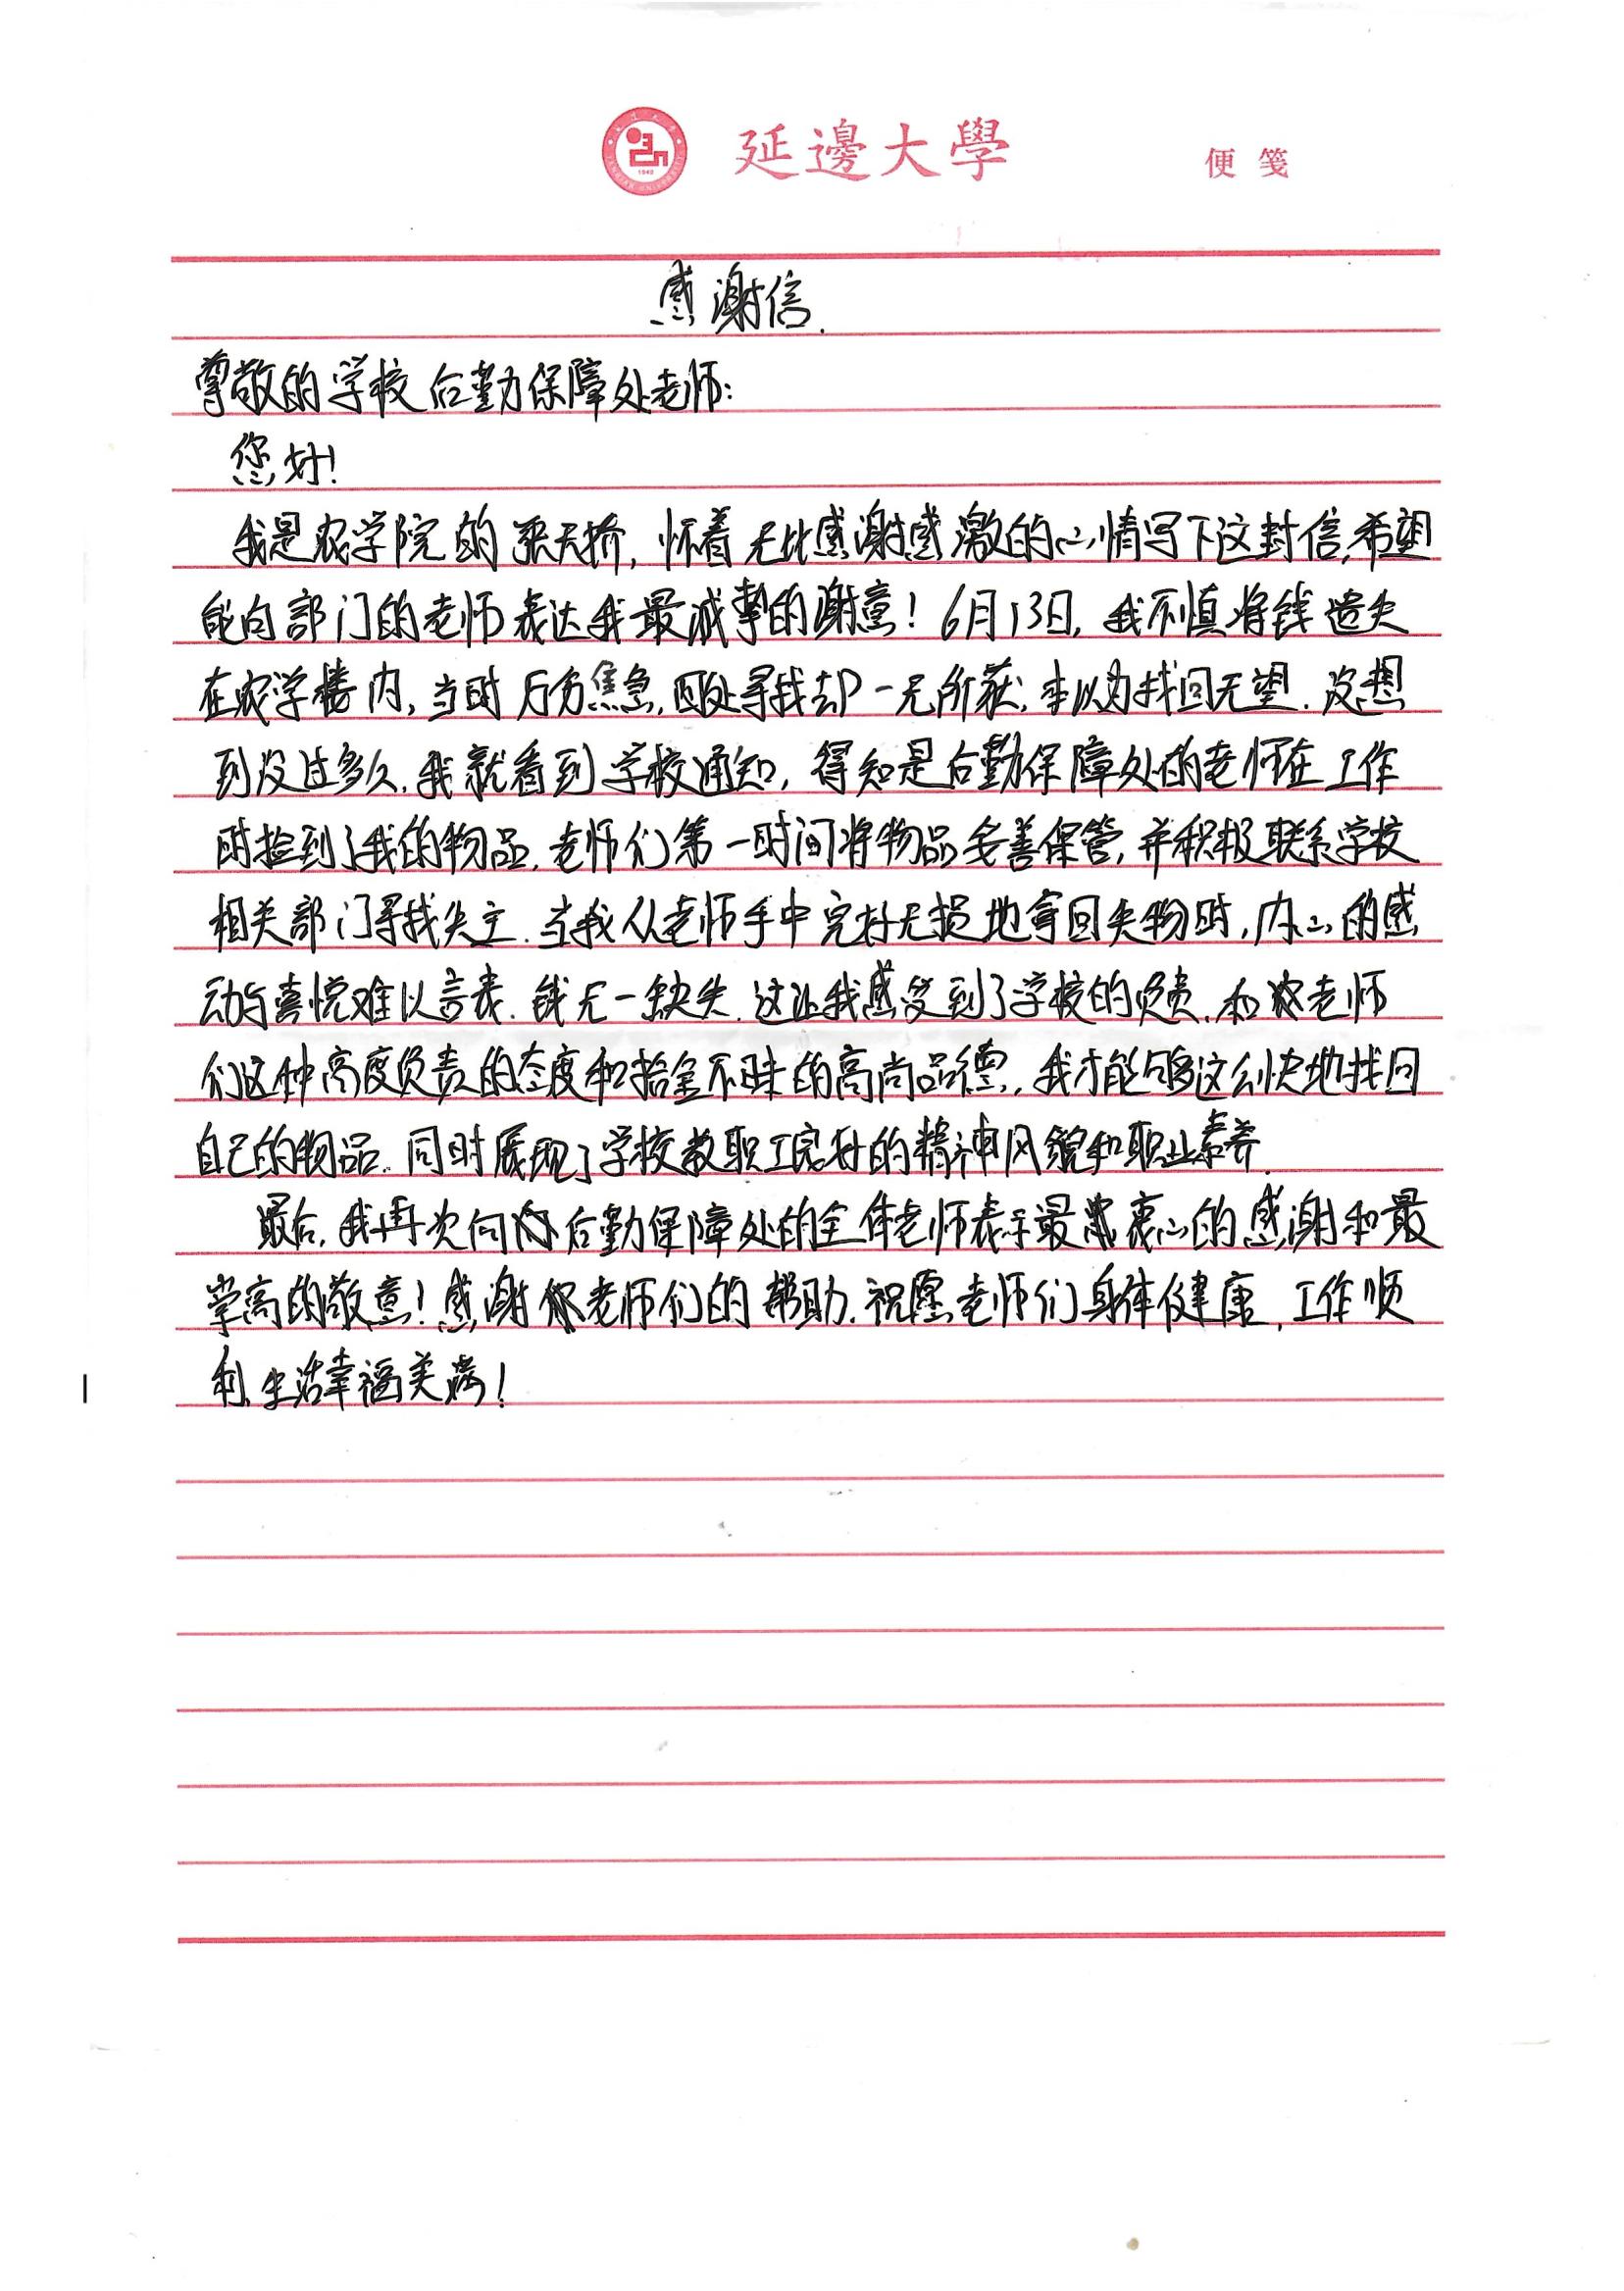 延邊大學
便箋
感谢信.
尊敬的学校后勤保障处老师:
您好!
我是农学院的张天桥,怀着无比感谢感激的心情写下这封信,希望
能向部门的老师表达我最诚挚的谢意!6月13日,我不慎将钱遗失
在农学楼内,当时万分焦急,四处寻找却一无所获,本以为找回无望.没想
到没过多久,我就看到学校通知,得知是后勤保障处的老师在工作
时捡到了我的物品,老师们第一时间将物品妥善保管,并积极联系学校
相关部门寻找失主.当我从老师手中完好无损地拿回失物时,内心的感
动与喜悦难以言表.钱无一缺失.这让我感受到了学校的负责.和老师
们这种高度负责的态度和拾金不昧的高尚品德,我才能够这么快地找回
自己的物品.同时展现了学校教职工良好的精神风貌和职业素养.
最后,我再次向后勤保障处的全体老师表示最衷心的感谢和最
崇高的敬意!感谢老师们的帮助.祝愿老师们身体健康,工作顺
利,生活幸福美满!